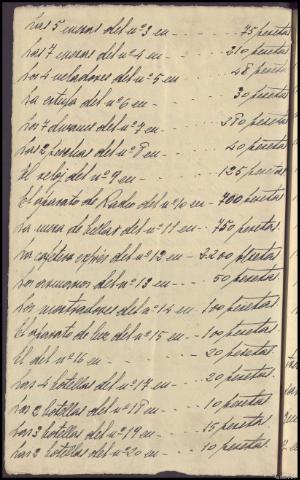 Las 5 mesas del nº 3 en - - - 75 pesetas
Las 7 mesas del nº 4 en - - - 210 pesetas
Los 4 veladores del nº 5 en - - - 48 pesetas
La estufa del nº 6 en - - - 30 pesetas
Los 7 divanes del nº 7 en - - - 280 pesetas
Las 2 perchas del nº 8 en - - - 40 pesetas
El reloj del nº 9 en - - - 125 pesetas
El aparato de Radio del nº 10 en - 700 pesetas
La mesa de billar del nº 11 en - 750 pesetas
La cafetera exprés del nº 12 en - 3.200 pesetas
Los armarios del nº 13 en - - - 50 pesetas
Los mostradores del nº 14 en - 100 pesetas
El aparato de luz del nº 15 en - 100 pesetas
El del nº 16 en - - - 20 pesetas
Las 4 botellas del nº 17 en - - 20 pesetas
Las 2 botellas del nº 18 en - - 10 pesetas
Las 3 botellas del nº 19 en - - 15 pesetas
Las 2 botellas del nº 20 en - - 10 pesetas